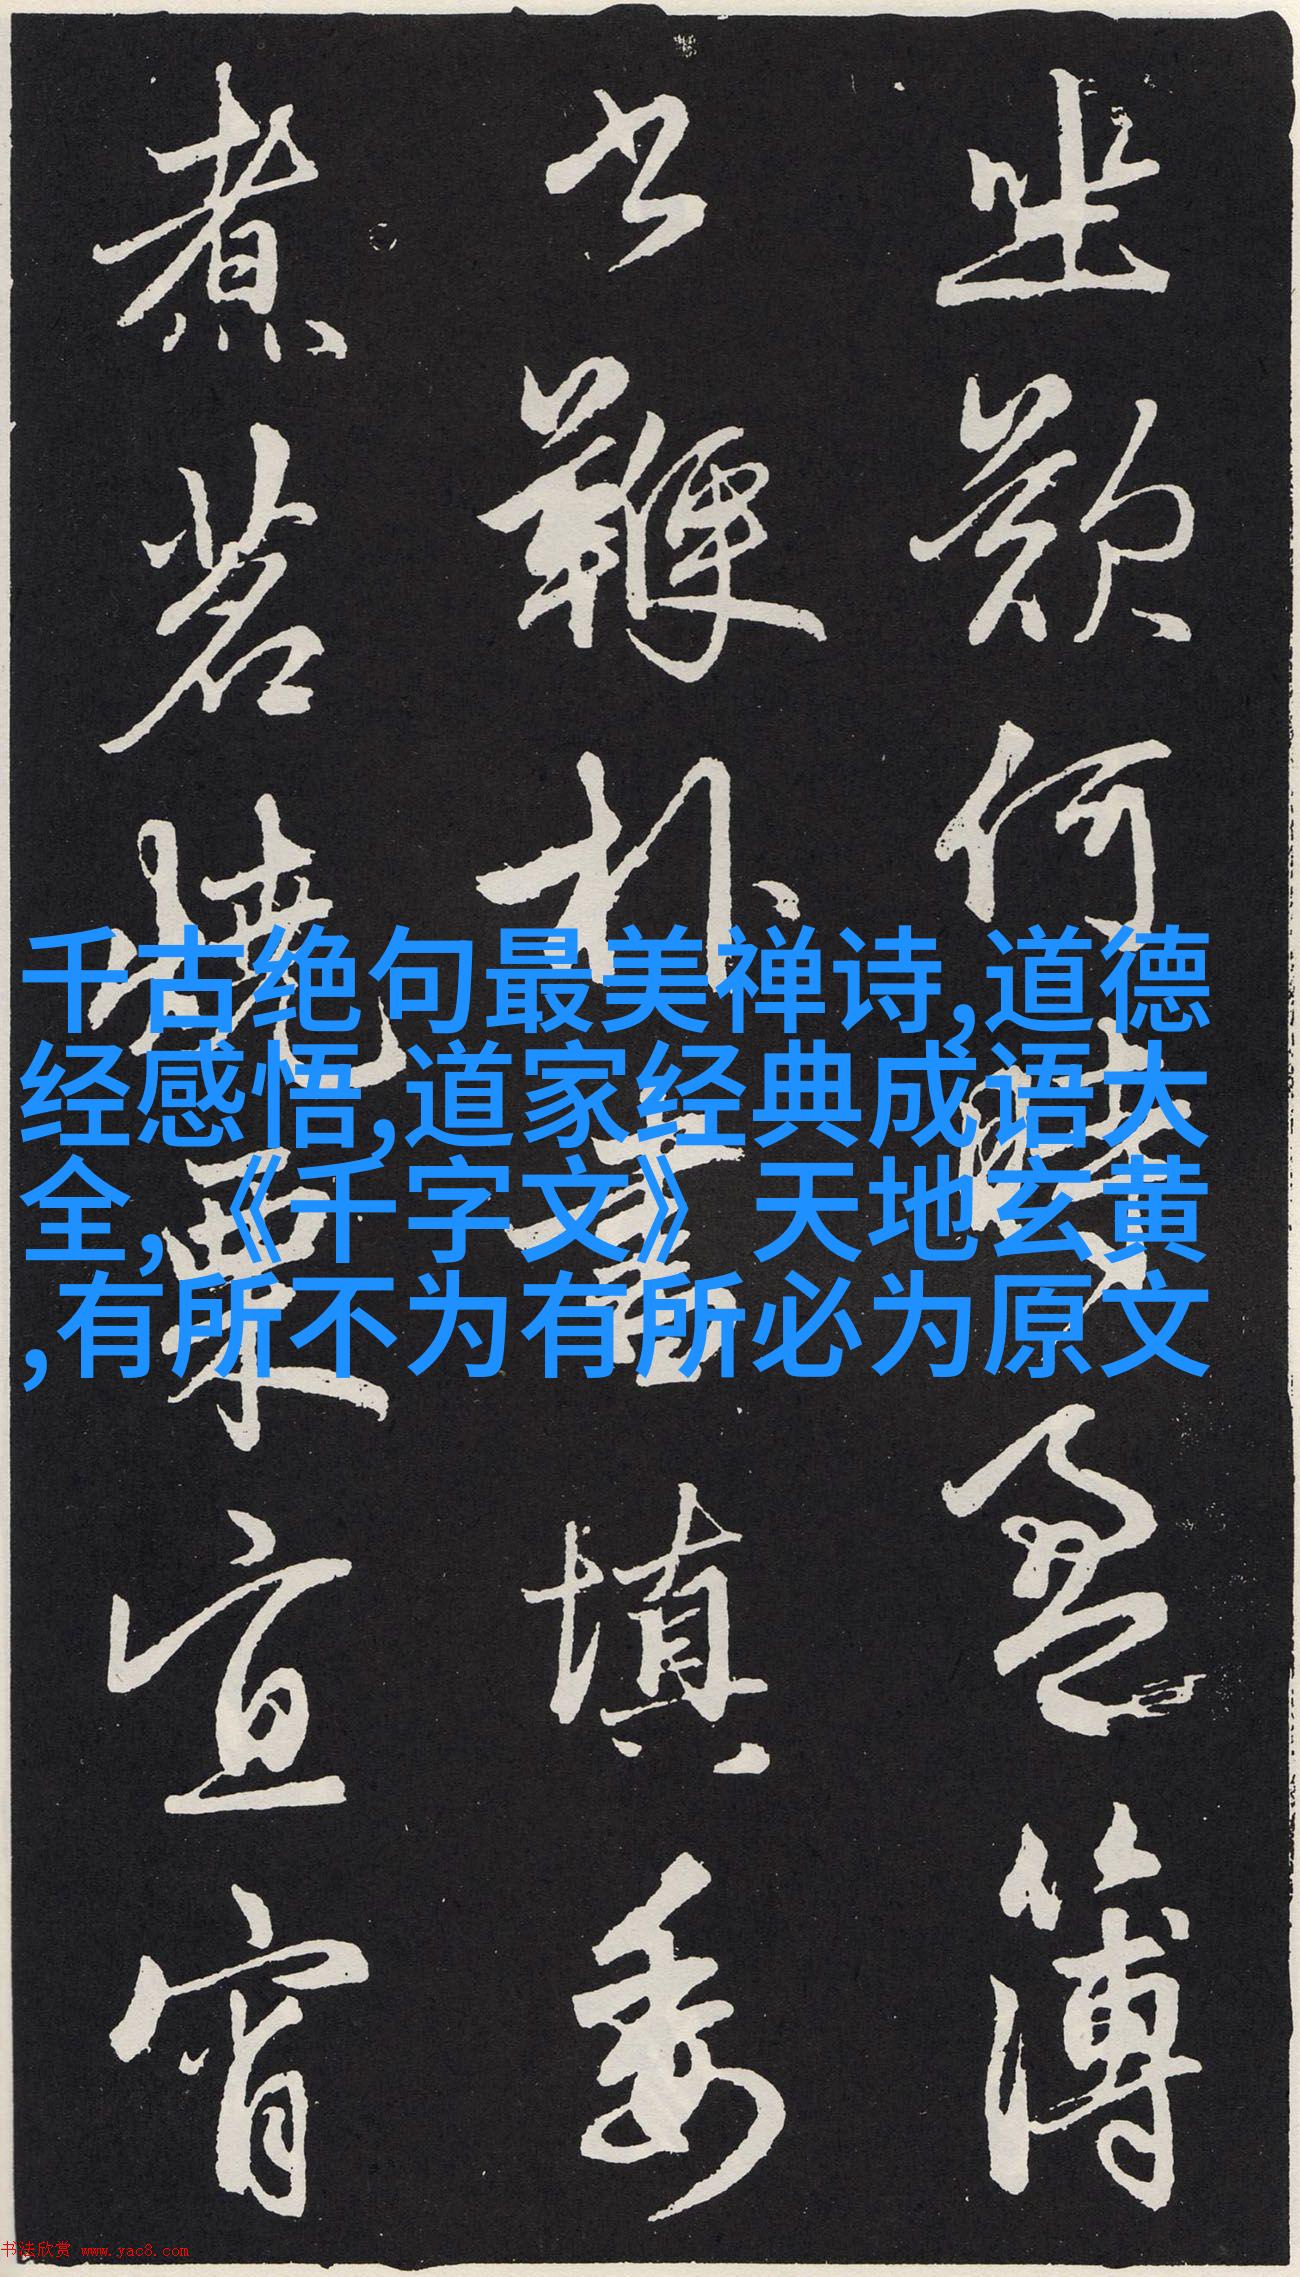 何盈簿
書鞭朴晝填委
煮茗燒栗宜宵
千古绝句最美禅诗,道德
经感悟,道家经典成语大
全,《千字文》天地玄黄
,有所不为有所必为原文
书法欣赏 www.yac8.com